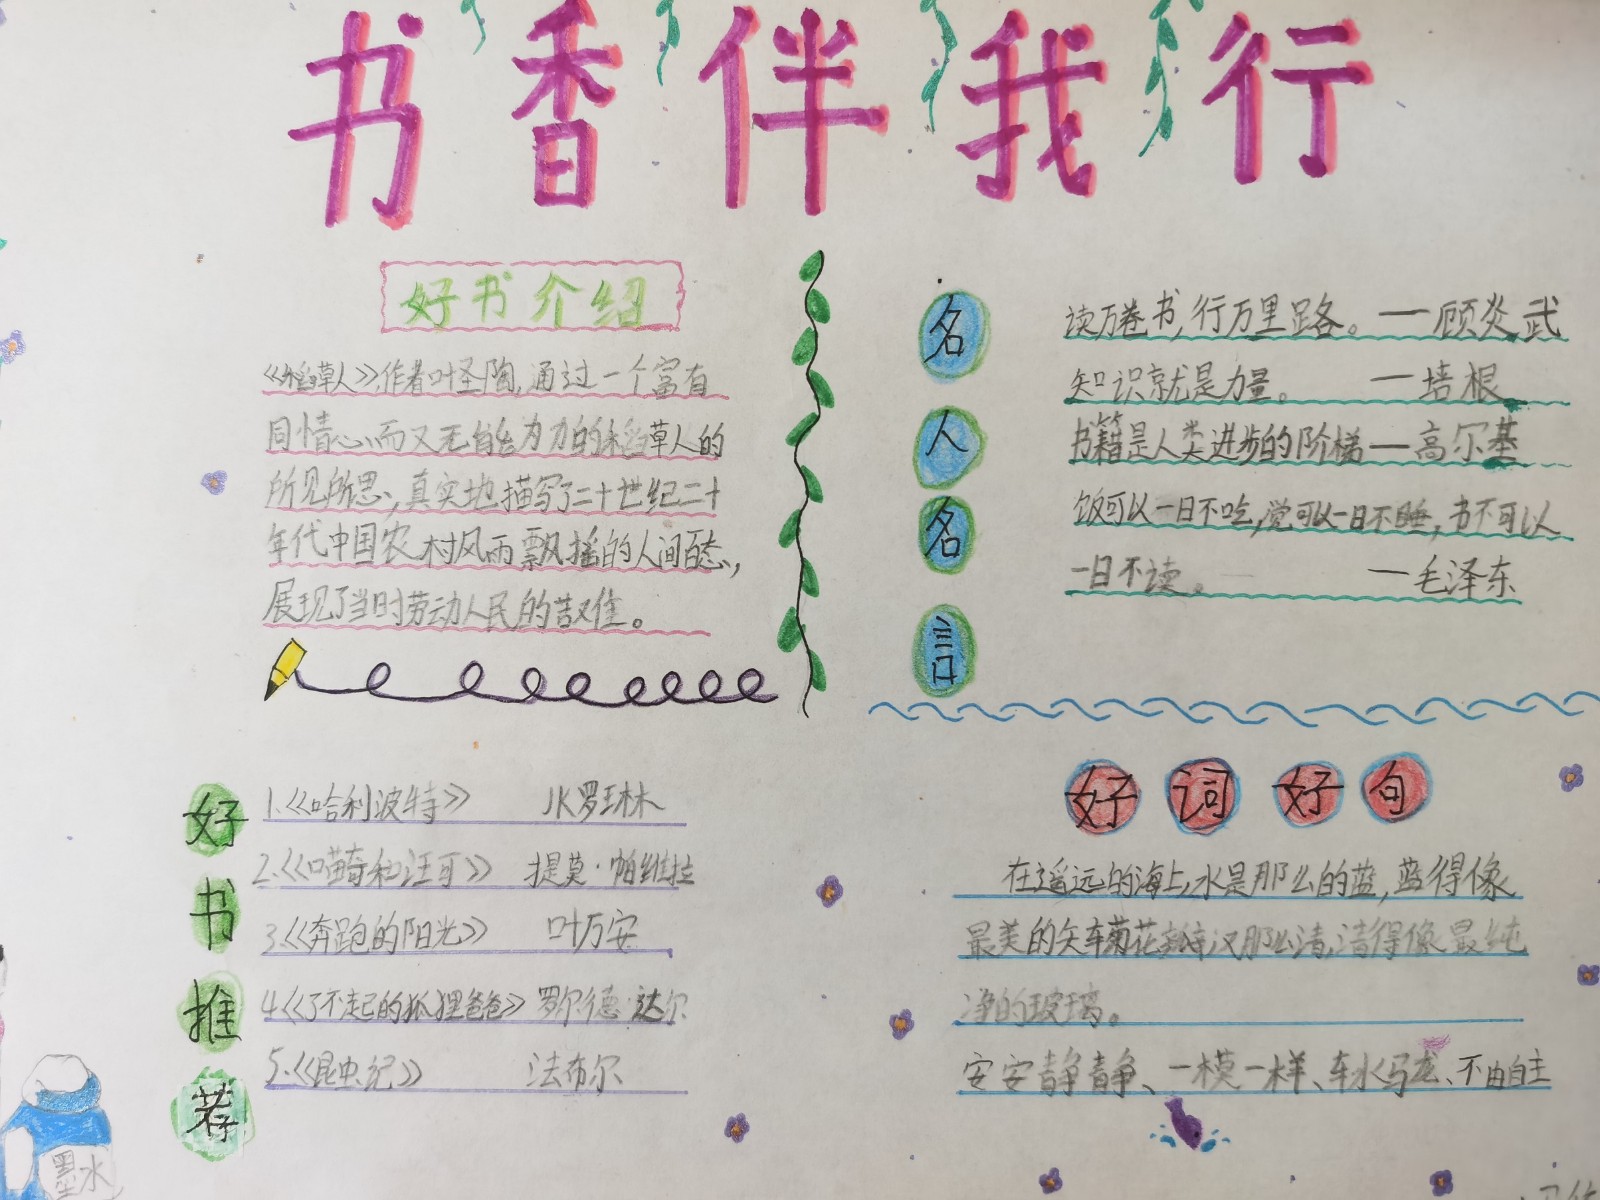 书香伴我行
好书介绍
《稻草人》,作者叶圣陶,通过一个富有
同情心、而又无能为力的稻草人的
所见所思,真实地描写了二十世纪二十
年代中国农村风雨飘摇的人间百态,
展现了当时劳动人民的苦难。
名人名言
读万卷书,行万里路。——顾炎武
知识就是力量。 ——培根
书籍是人类进步的阶梯——高尔基
饭可以一日不吃,觉可以一日不睡,书不可以
一日不读。 ——毛泽东
好书推荐
1.《哈利波特》 JK罗琳
2.《喵奇和汪可》 提莫·帕维拉
3.《奔跑的阳光》 叶万安
4《了不起的狐狸爸爸》罗尔德·达尔
5.《昆虫记》 法布尔
好词好句
在遥远的海上,水是那么的蓝,蓝得像
最美的矢车菊花瓣 那么清,清得像最纯
净的玻璃。
安安静静、一模一样、车水马龙、不由自主
墨水